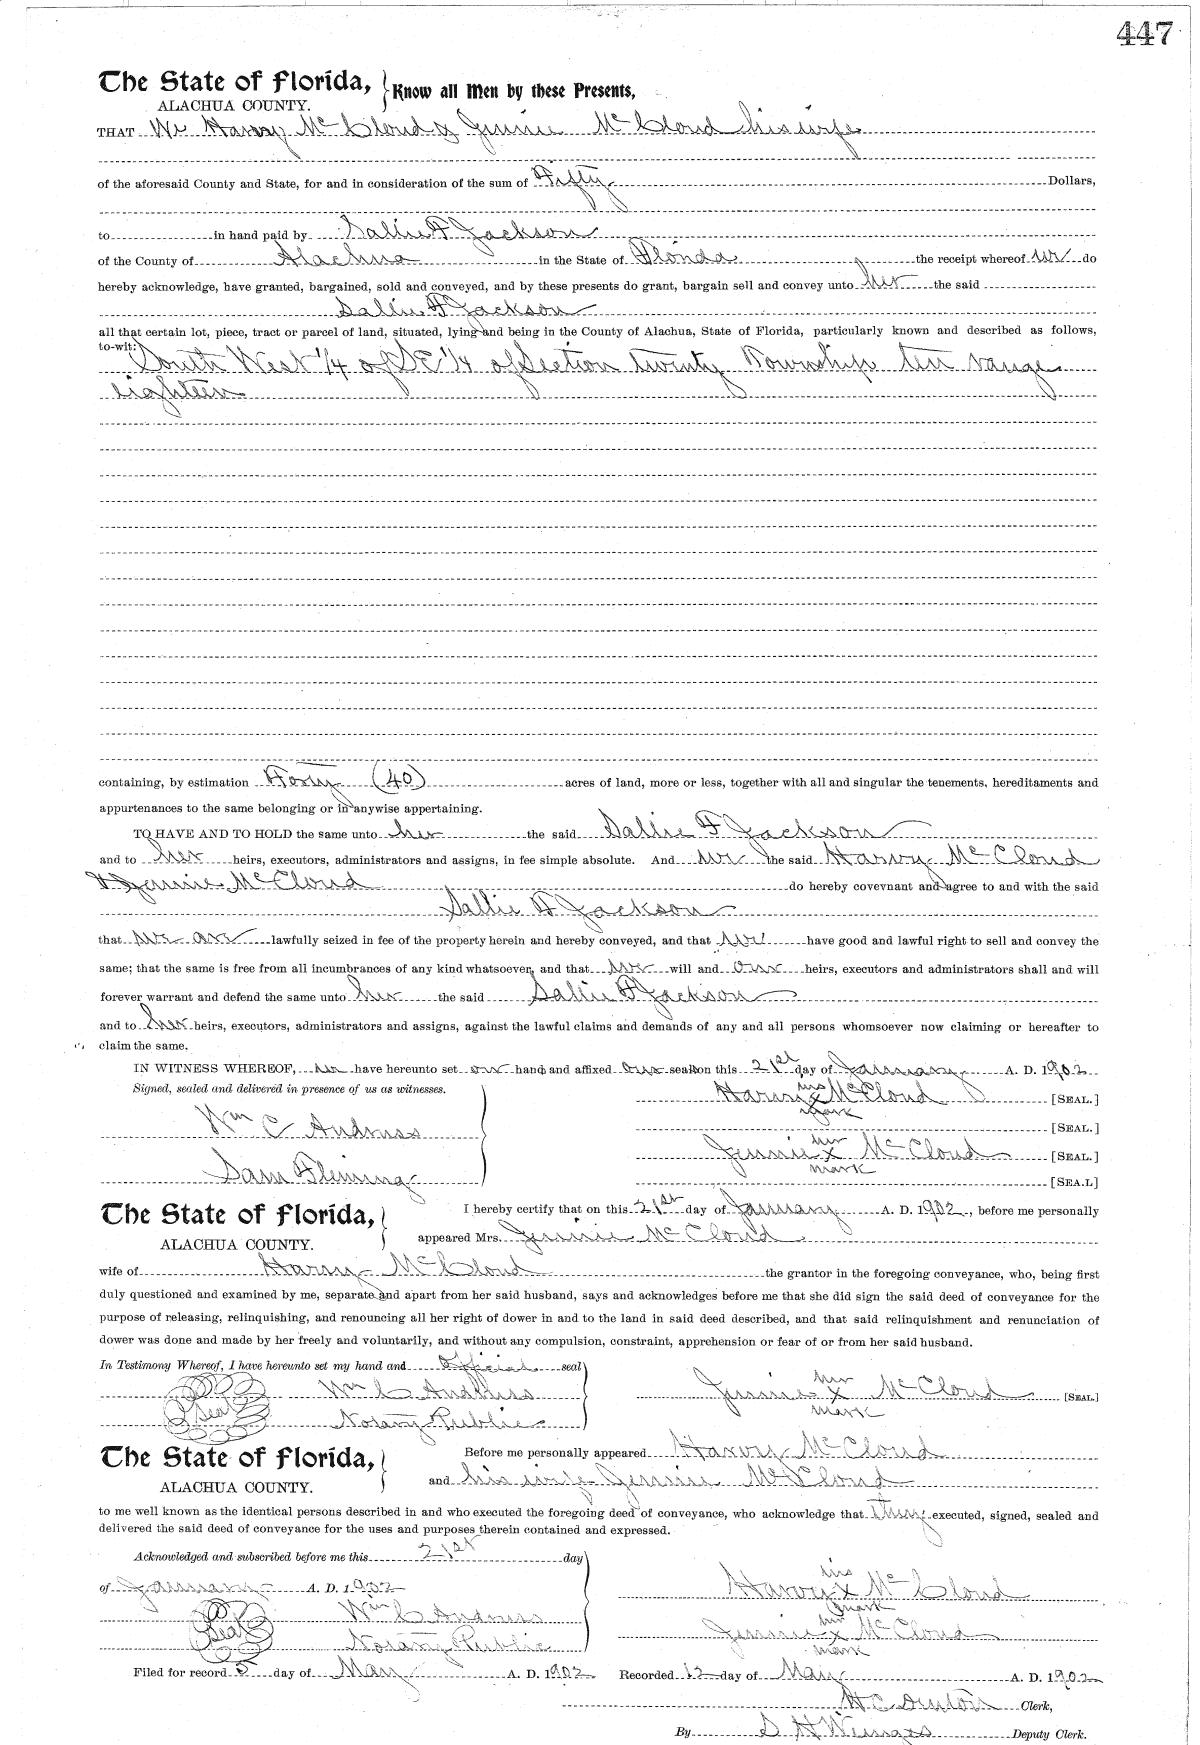 447
The State of Florida, } Know all Men by these Presents,
ALACHUA COUNTY.
THAT We Harvy McCloud & Jennie McCloud his wife
of the aforesaid County and State, for and in consideration of the sum of Fifty Dollars,
to in hand paid by Sallie F Jackson
of the County of Alachua in the State of Florida the receipt whereof we do
hereby acknowledge, have granted, bargained, sold and conveyed, and by these presents do grant, bargain sell and convey unto her the said
Sallie F Jackson
all that certain lot, piece, tract or parcel of land, situated, lying and being in the County of Alachua, State of Florida, particularly known and described as follows,
to-wit: South West 1/4 of SE 1/4 of Section twenty Township ten range
eighteen
containing, by estimation Forty (40) acres of land, more or less, together with all and singular the tenements, hereditaments and
appurtenances to the same belonging or in anywise appertaining.
TO HAVE AND TO HOLD the same unto her the said Sallie F Jackson
and to her heirs, executors, administrators and assigns, in fee simple absolute. And we the said Harvy McCloud
& Jennie McCloud do hereby covevnant and agree to and with the said
Sallie F Jackson
that we are lawfully seized in fee of the property herein and hereby conveyed, and that we have good and lawful right to sell and convey the
same; that the same is free from all incumbrances of any kind whatsoever, and that we will and our heirs, executors and administrators shall and will
forever warrant and defend the same unto her the said Sallie F Jackson
and to her heirs, executors, administrators and assigns, against the lawful claims and demands of any and all persons whomsoever now claiming or hereafter to
claim the same.
IN WITNESS WHEREOF, we have hereunto set our hand and affixed our seal on this 21st day of January A. D. 1902
Signed, sealed and delivered in presence of us as witnesses.
Harvy his x mark McCloud [SEAL.]
Wm C Andruss [SEAL.]
Jennie her x mark McCloud [SEAL.]
Sam Fleming [SEA.L]
The State of Florida, } I hereby certify that on this 21st day of January A. D. 1902, before me personally
ALACHUA COUNTY. appeared Mrs. Jennie McCloud
wife of Harvy McCloud the grantor in the foregoing conveyance, who, being first
duly questioned and examined by me, separate and apart from her said husband, says and acknowledges before me that she did sign the said deed of conveyance for the
purpose of releasing, relinquishing, and renouncing all her right of dower in and to the land in said deed described, and that said relinquishment and renunciation of
dower was done and made by her freely and voluntarily, and without any compulsion, constraint, apprehension or fear of or from her said husband.
In Testimony Whereof, I have hereunto set my hand and official seal
Seal Wm C Andruss Jennie her x mark McCloud [SEAL.]
Notary Public
The State of Florida, } Before me personally appeared Harvy McCloud
ALACHUA COUNTY. and his wife Jennie McCloud
to me well known as the identical persons described in and who executed the foregoing deed of conveyance, who acknowledge that they executed, signed, sealed and
delivered the said deed of conveyance for the uses and purposes therein contained and expressed.
Acknowledged and subscribed before me this 21st day
of January A. D. 1902 Harvy his x mark McCloud
Seal Wm C Andruss
Notary Public Jennie her x mark McCloud
Filed for record 5 day of May A. D. 1902 Recorded 12 day of May A. D. 1902
H C Clerk,
By S H Wienges Deputy Clerk.